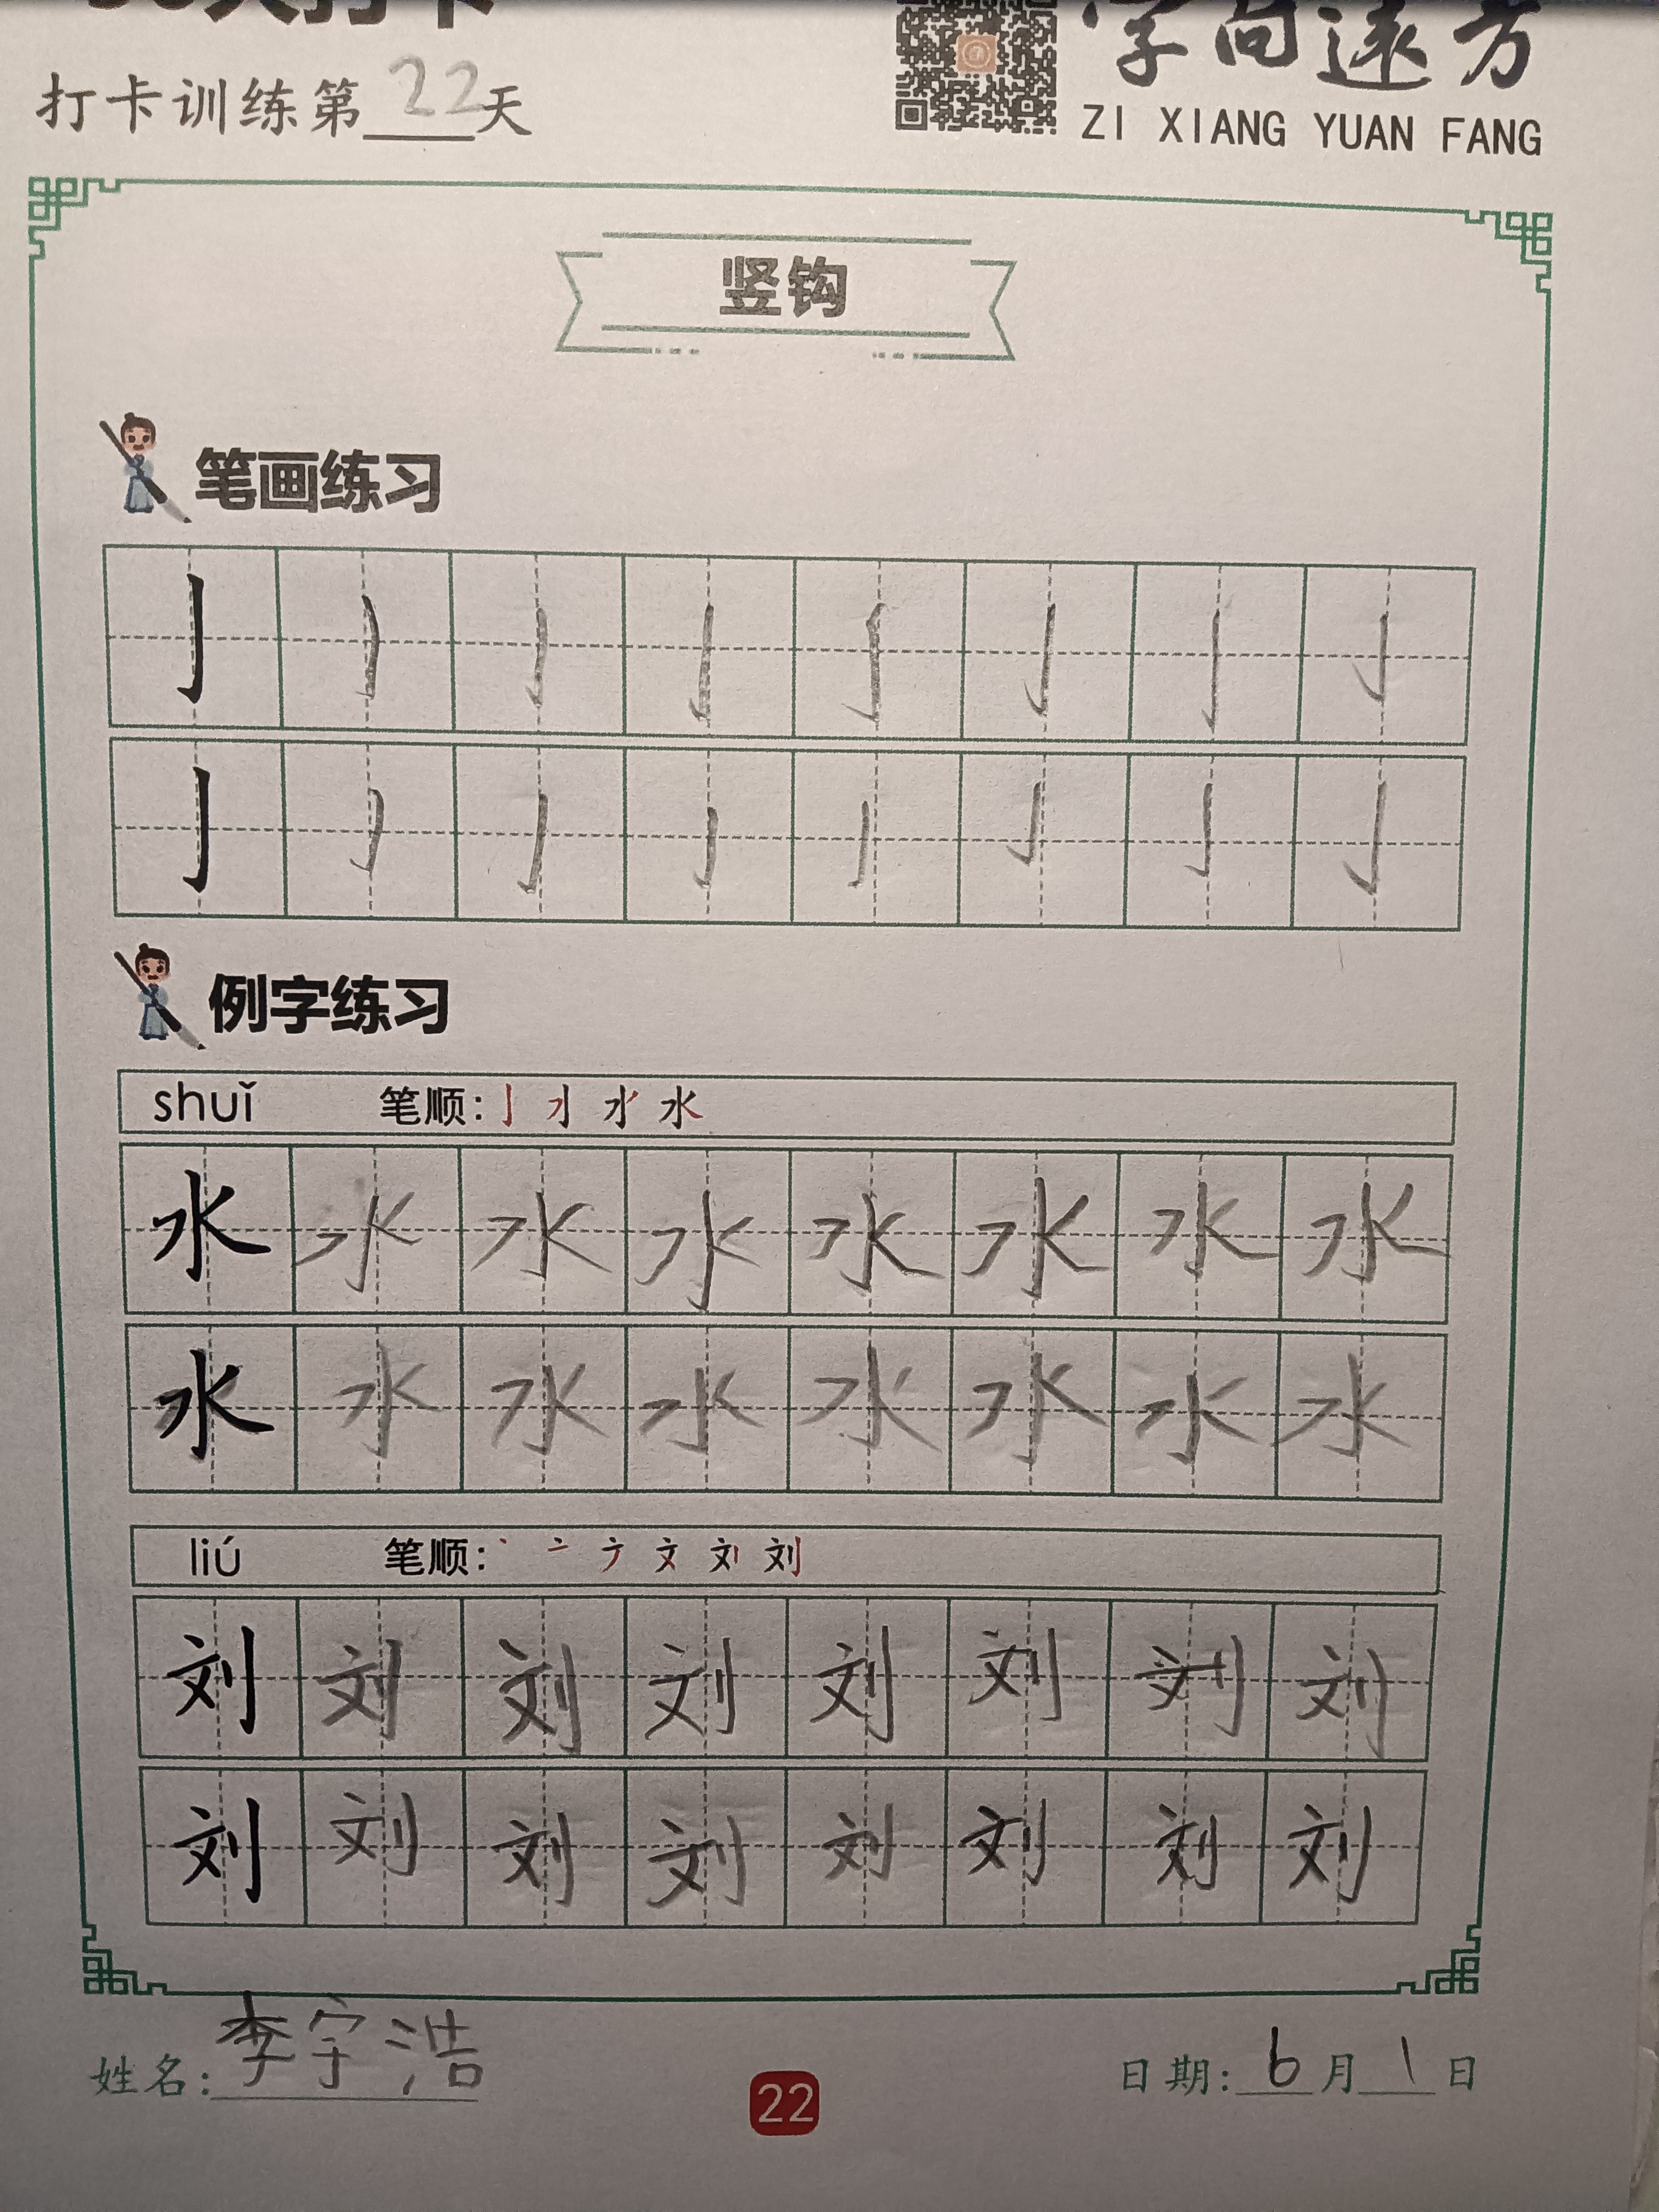 打卡训练第22天
字向远方
ZI XIANG YUAN FANG
竖钩
笔画练习
亅 亅 亅 亅 亅 亅 亅 亅
亅 亅 亅 亅 亅 亅 亅 亅
例字练习
shuǐ 笔顺:
水 水 水 水 水 水 水 水
水 水 水 水 水 水 水 水
liú 笔顺:
刘 刘 刘 刘 刘 刘 刘 刘
刘 刘 刘 刘 刘 刘 刘 刘
姓名:李宇浩
22
日期:6月1日